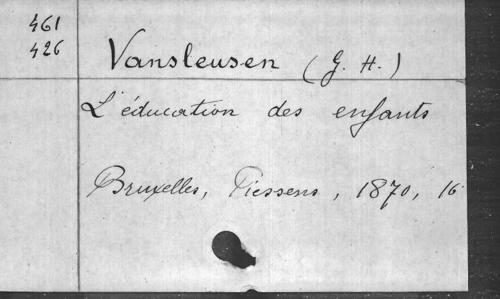 461
426
Vansleusen (G. H.)
L'éducation des enfants
Bruxelles, Tiessens, 1870, 16